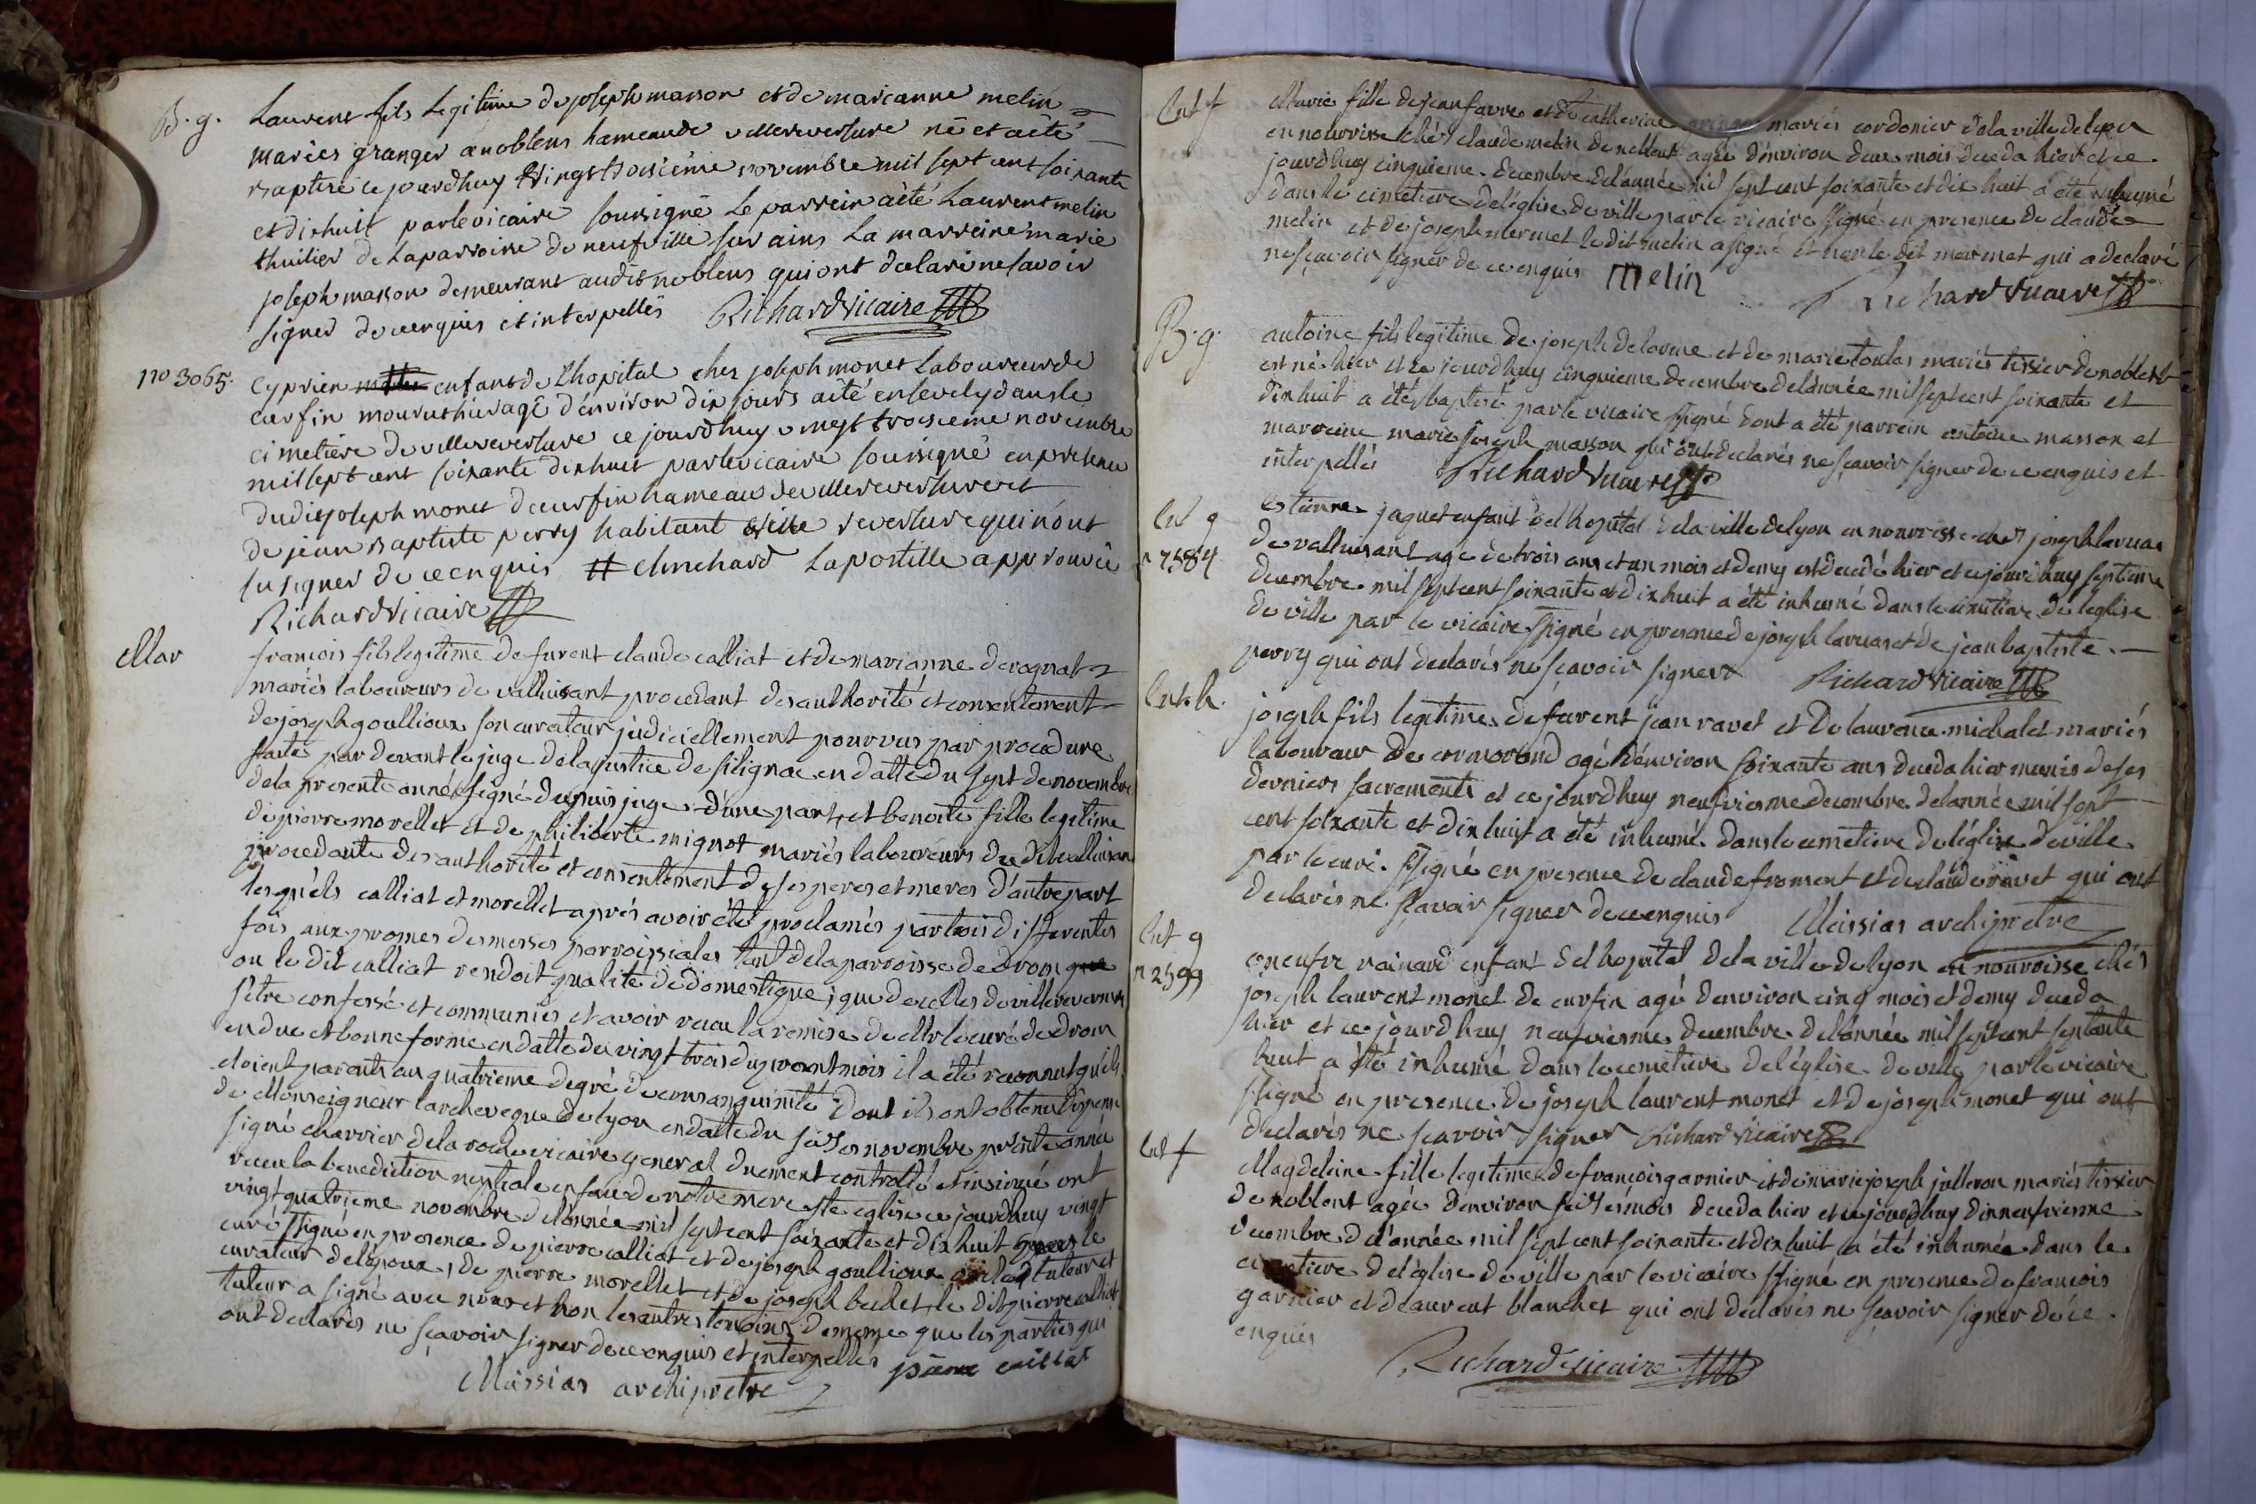 B. g.
Laurent fils Legitime de joseph masson et de marianne melin
mariés granger a noblens hameau de villereversure né et a été
baptisé ce jourdhuy vingt troisieme novembre mil sept cent soixante
et dixhuit par le vicaire soussigné Le parrein a été Laurent melin
thuilier de La parroisse de neufville sur ains La marreine marie
joseph masson demeurant audit noblens qui ont declaré ne savoir
signer de ce enquis et interpellés Richard vicaire
no 3065.
Cyprien enfant de L'hopital chez joseph monet Laboureur de
curfin mourut hier agé d'environ dix jours a été ensevely dans le
cimetière de villereversure ce jourdhuy vingt troisieme novembre
mil sept cent soixante dixhuit par le vicaire soussigné en presence
dudit joseph monet de curfin hameau de villereversure et
de jean baptiste perry habitant ville reversure qui n'ont
su signer de ce enquis # clinchard La postille approuvée
Richard vicaire
Mar
francois fils legitime de furent claude calliat et de marianne derognat
mariés laboureurs de valluisant procedant des authorité et consentement
de joseph goullioux son curateur judiciellement pourvus par procedure
faite par devant le juge de la justice de silignac en datte du sept de novembre
de la presente année signé dupuis juge d'une part, et benoite fille legitime
de pierre morellet et de philiberte mignot mariés laboureurs du dit valluisant
procedante des authorité et consentement de ses peres et meres d'autre part
lesquels calliat et morellet aprés avoir été proclamés par trois differentes
fois aux prones des messes parroissiales tant de la parroisse de drom
ou le dit calliat rendoit qualité de domestique, que de celles de villereversure
s'etre confessé et communiés et avoir recu la remise de Mr le curé de drom
en due et bonne forme en datte du vingt trois du present mois il a été reconnut qu'ils
etoient parents au quatrieme degré de consanguinité dont ils ont obtenu dispense
de Monseigneur l'archeveque de lyon en datte du seize novembre presente année
signé charrier de la roche vicaire general duement controllé et insinué ont
recu la benediction nuptiale en face de notre mere ste eglise ce jourdhuy vingt
vingt quatrieme novembre de l'année mil sept cent soixante et dixhuit par le
curé ssigné en presence de pierre calliat et de joseph goullioux tuteur et
curateur de l'epoux, de pierre morellet et de joseph buchet, le dit pierre calliat
tuteur a signé avec nous et non les autres temoins de meme que les parties qui
ont declarés ne scavoir signer de ce enquis et interpellés pierre calliat
Messias archipretre
Ent f
Marie fille de jean favre et de catherine mariés cordonier de la ville de lyon
en nourrisse chés claude melin de noblent agée d'environ deux mois deceda hier et ce
jourdhuy cinquieme decembre de l'année mil sept cent soixante et dix huit a été inhumé
dans le cimetiere de l'église de ville par le vicaire ssigné en presence de claude
melin et de joseph mermet le dit melin a signé et non le dit mermet qui a declaré
ne scavoir signer de ce enquis Melin Richard vicaire
B. g.
antoine fils legitime de joseph delorme et de marie toulas mariés tissier de noblent
est né hier et ce jourdhuy cinquieme decembre de l'année mil sept cent soixante et
dixhuit a été baptisé par le vicaire ssigné dont a été parrein antoine masson et
marreine marie joseph masson qui ont declarés ne scavoir signer de ce enquis et
interpellés Richard vicaire
Ent g
n 7584
Estienne jaquet enfant de l'hopital de la ville de lyon en nourrisse chés joseph laruas
de valluisant agé de trois ans et un mois et demy est decedé hier et ce jourdhuy septieme
decembre mil sept cent soixante et dixhuit a été inhumé dans le cimetiere de l'eglise
de ville par le vicaire ssigné en presence de joseph laruas et de jean baptiste
perry qui ont declarés ne scavoir signer Richard vicaire
Ent. h.
joseph fils legitime de furent jean ravet et de laurence michalet mariés
laboureur de cormorand agé d'environ soixante ans deceda hier munis de ses
derniers sacrements et ce jourdhuy neufviesme decembre de l'année mil sept
cent soixante et dix huit a été inhumé dans le cimetiere de l'église de ville
par le curé ssigné en presence de claude froment et de claude ravet qui ont
declarés ne scavoir signer de ce enquis Messias archipretre
Ent g
n 2599
onufre rainard enfant de l'hopital de la ville de lyon en nourrisse chés
joseph laurent monet de curfin agé d'environ cinq mois et demy deceda
hier et ce jourdhuy neufviesme decembre de l'année mil sept cent septante
huit a été inhumé dans le cimetiere de l'église de ville par le vicaire
ssigné en presence de joseph laurent monet et de joseph monet qui ont
declarés ne scavoir signer Richard vicaire
Ent f
Magdeleine fille legitime de francois garnier et de marie joseph julleron mariés tissier
de noblent agée d'environ seize mois deceda hier et ce jourdhuy dixneufviesme
decembre de l'année mil sept cent soixante et dixhuit a été inhumée dans le
cimetiere de l'église de ville par le vicaire ssigné en presence de francois
garnier et de laurent blanchet qui ont declarés ne scavoir signer de ce
enquis
Richard vicaire